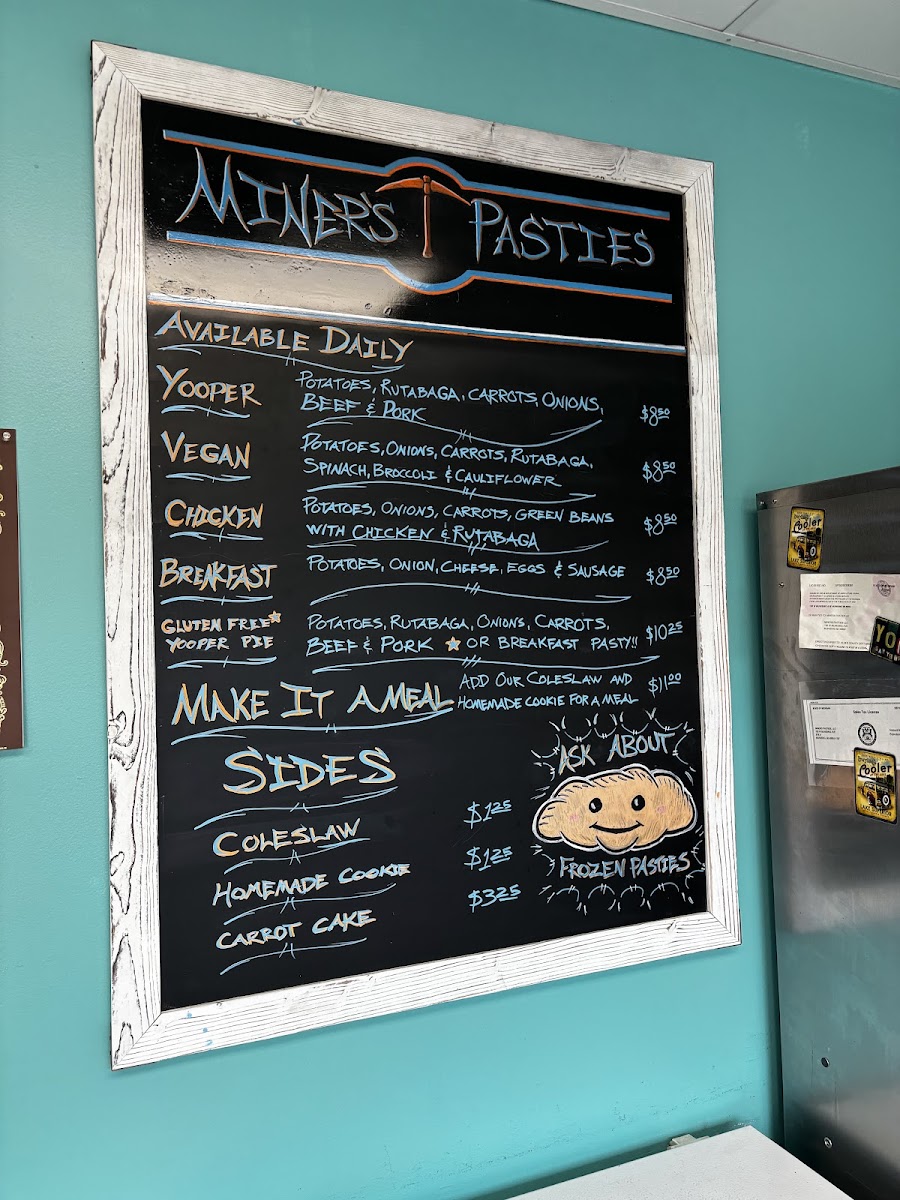 MINER'S PASTIES
AVAILABLE DAILY
YOOPER
POTATOES, RUTABAGA, CARROTS, ONIONS,
BEEF & PORK
$8.50
VEGAN
POTATOES, ONIONS, CARROTS, RUTABAGA,
SPINACH, BROCCOLI & CAULIFLOWER
$8.50
CHICKEN
POTATOES, ONIONS, CARROTS, GREEN BEANS
WITH CHICKEN & RUTABAGA
$8.50
BREAKFAST
POTATOES, ONION, CHEESE, EGGS & SAUSAGE
$8.50
GLUTEN FREE
YOOPER PIE
POTATOES, RUTABAGA, ONIONS, CARROTS,
BEEF & PORK OR BREAKFAST PASTY!!
$10.25
MAKE IT A MEAL
ADD OUR COLESLAW AND
HOMEMADE COOKIE FOR A MEAL
$11.00
SIDES
COLESLAW
$1.25
HOMEMADE COOKIE
$1.25
CARROT CAKE
$3.25
ASK ABOUT
FROZEN PASTIES
Cooler
YO
Sales Tax License
Cooler